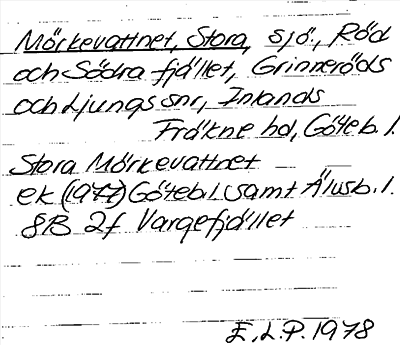 Mörkevattnet, Stora, sjö., Röd
och Södra fjället, Grinneröds
och Ljungs snr, Inlands
Fräkne hd, Göteb. l.
Stora Mörkevattnet
ek (1977) Göteb.l. samt Älvsb. l.
8B 2f Vargefjället
E. L. P. 1978